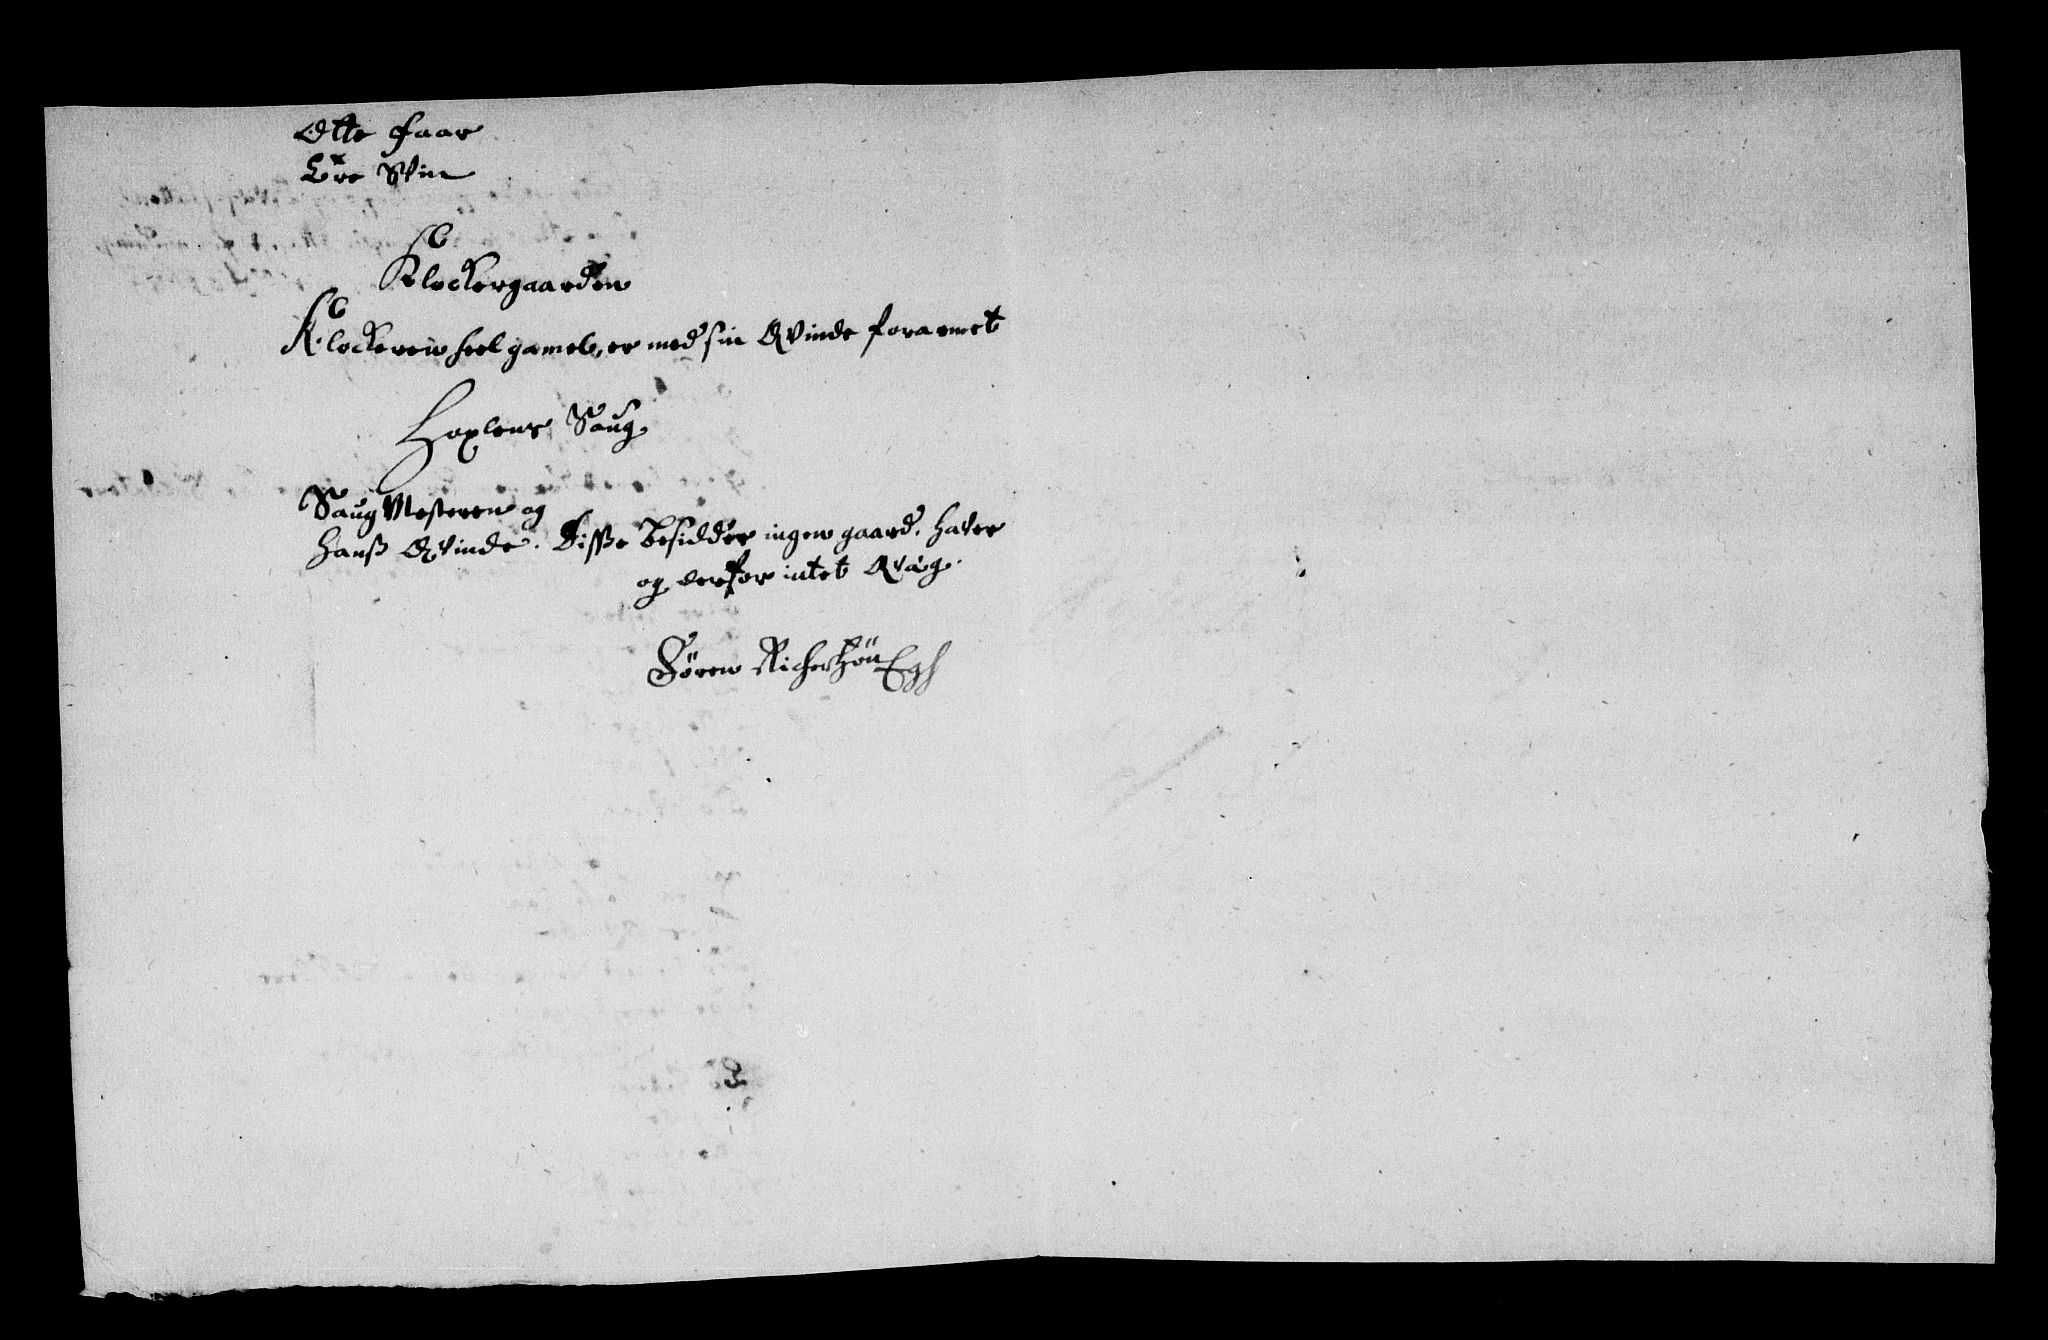 Otte faar
Tre Svin
Klockergaarden
Klockeren heel gamel, er med sin Qvinde forarmet
Hoxlens Saug
Saug Mesteren og
hanß Qvinde. Disse besidder ingen gaard, haver
og derfor intet Qvæg.
Sören